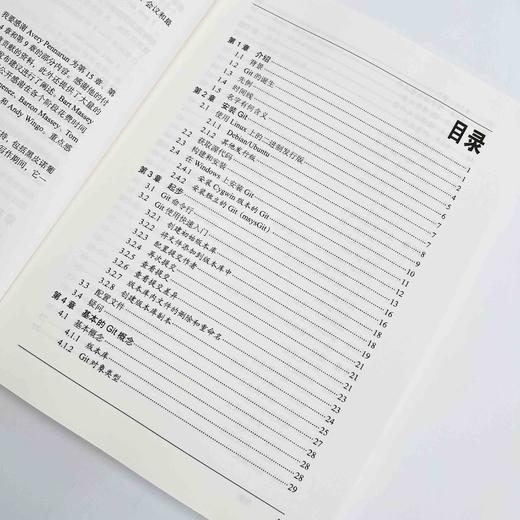 会议和最
我要感谢 Avery Pennarun 为第 15 章、第
4 章和第 9 章的部分内容。感谢他的付
贡献的资料，此外还提供了大量的
发布建议进行了阐述。Bart Massey
公开感谢在各个阶段花费时间
rence, Barton Massey, Tom
和 Andy Wingo，重点感
持，包括黑皮诺葡
写作期间，它
目录
第 1 章 介绍 1
1.1 背景
1.2 Git 的诞生
1.3 先例
1.4 时间线
1.5 名字有何含义
第 2 章 安装 Git
2.1 使用 Linux 上的二进制发行版
2.1.1 Debian/Ubuntu
2.1.2 其他发行版
2.2 获取源代码
2.3 构建和安装
2.4 在 Windows 上安装 Git
2.4.1 安装 Cygwin 版本的 Git
2.4.2 安装独立的 Git（msysGit）
第 3 章 起步
3.1 Git 命令行
3.2 Git 使用快速入门
3.2.1 创建初始版本库
3.2.2 将文件添加到版本库中
3.2.3 配置提交作者
3.2.4 再次提交
3.2.5 查看提交
3.2.6 查看提交差异
3.2.7 版本库内文件的删除和重命名
3.2.8 创建版本库副本
3.3 配置文件
3.4 疑问
第 4 章 基本的 Git 概念 27
4.1 基本概念 28
4.1.1 版本库 28
4.1.2 Git 对象类型 29